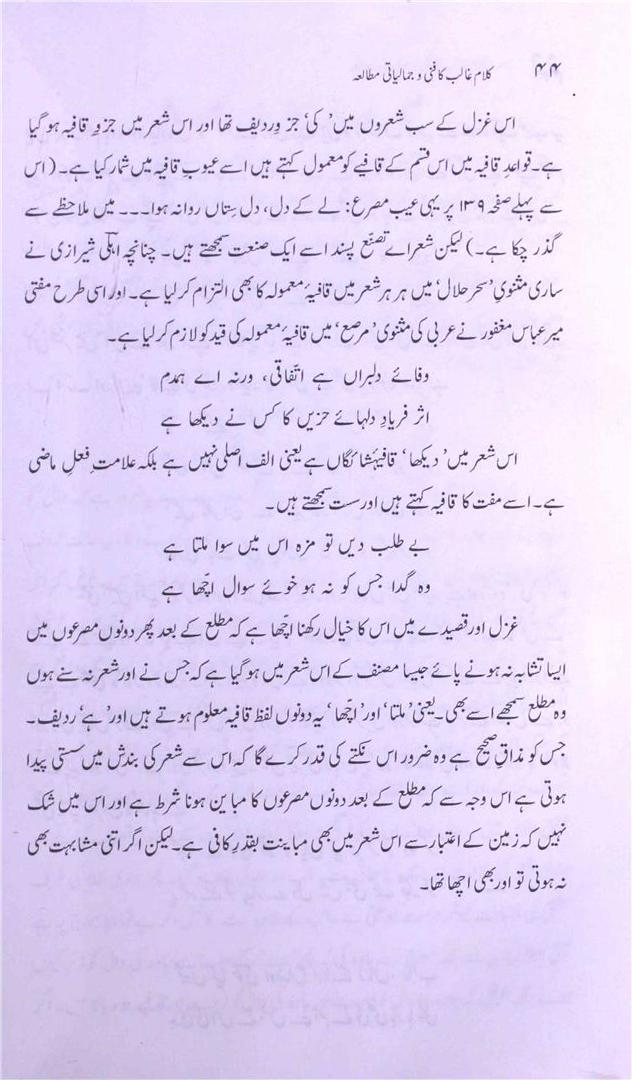 ۴۴ کلام غالب کا فنی و جمالیاتی مطالعہ
اس غزل کے سب شعروں میں 'کی' جزوِ ردیف تھا اور اس شعر میں جزوِ قافیہ ہو گیا
ہے۔ قواعدِ قافیہ میں اس قسم کے قافیے کو معمول کہتے ہیں اسے عیوبِ قافیہ میں شمار کیا ہے۔ (اس
سے پہلے صفحہ ۱۳۹ پر یہی عیب مصرع: لے کے دل، دل ستاں روانہ ہوا۔۔۔ میں ملاحظے سے
گذر چکا ہے۔) لیکن شعراے تصنّع پسند اسے ایک صنعت سمجھتے ہیں۔ چنانچہ اہلی شیرازی نے
ساری مثنویِ 'سحرِ حلال' میں ہر ہر شعر میں قافیۂ معمولہ کا بھی التزام کر لیا ہے۔ اور اسی طرح مفتی
میر عباس مغفور نے عربی کی مثنوی 'مرصع' میں قافیۂ معمولہ کی قید کو لازم کر لیا ہے۔
وفائے دلبراں ہے اتّفاقی، ورنہ اے ہمدم
اثر فریادِ دلہائے حزیں کا کس نے دیکھا ہے
اس شعر میں 'دیکھا' قافیۂ شائگاں ہے یعنی الف اصلی نہیں ہے بلکہ علامتِ فعلِ ماضی
ہے۔ اسے مفت کا قافیہ کہتے ہیں اور سست سمجھتے ہیں۔
بے طلب دیں تو مزہ اس میں سوا ملتا ہے
وہ گدا جس کو نہ ہو خوئے سوال اچّھا ہے
غزل اور قصیدے میں اس کا خیال رکھنا اچّھا ہے کہ مطلع کے بعد پھر دونوں مصرعوں میں
ایسا تشابہ نہ ہونے پائے جیسا مصنف کے اس شعر میں ہو گیا ہے کہ جس نے اور شعر نہ سنے ہوں
وہ مطلع سمجھے اسے بھی۔ یعنی 'ملتا' اور 'اچّھا' یہ دونوں لفظ قافیہ معلوم ہوتے ہیں اور 'ہے' ردیف۔
جس کو مذاقِ صحیح ہے وہ ضرور اس نکتے کی قدر کرے گا کہ اس سے شعر کی بندش میں سستی پیدا
ہوتی ہے اس وجہ سے کہ مطلع کے بعد دونوں مصرعوں کا مباین ہونا شرط ہے اور اس میں شک
نہیں کہ زمین کے اعتبار سے اس شعر میں بھی مباینت بقدرِ کافی ہے۔ لیکن اگر اتنی مشابہت بھی
نہ ہوتی تو اور بھی اچھا تھا۔